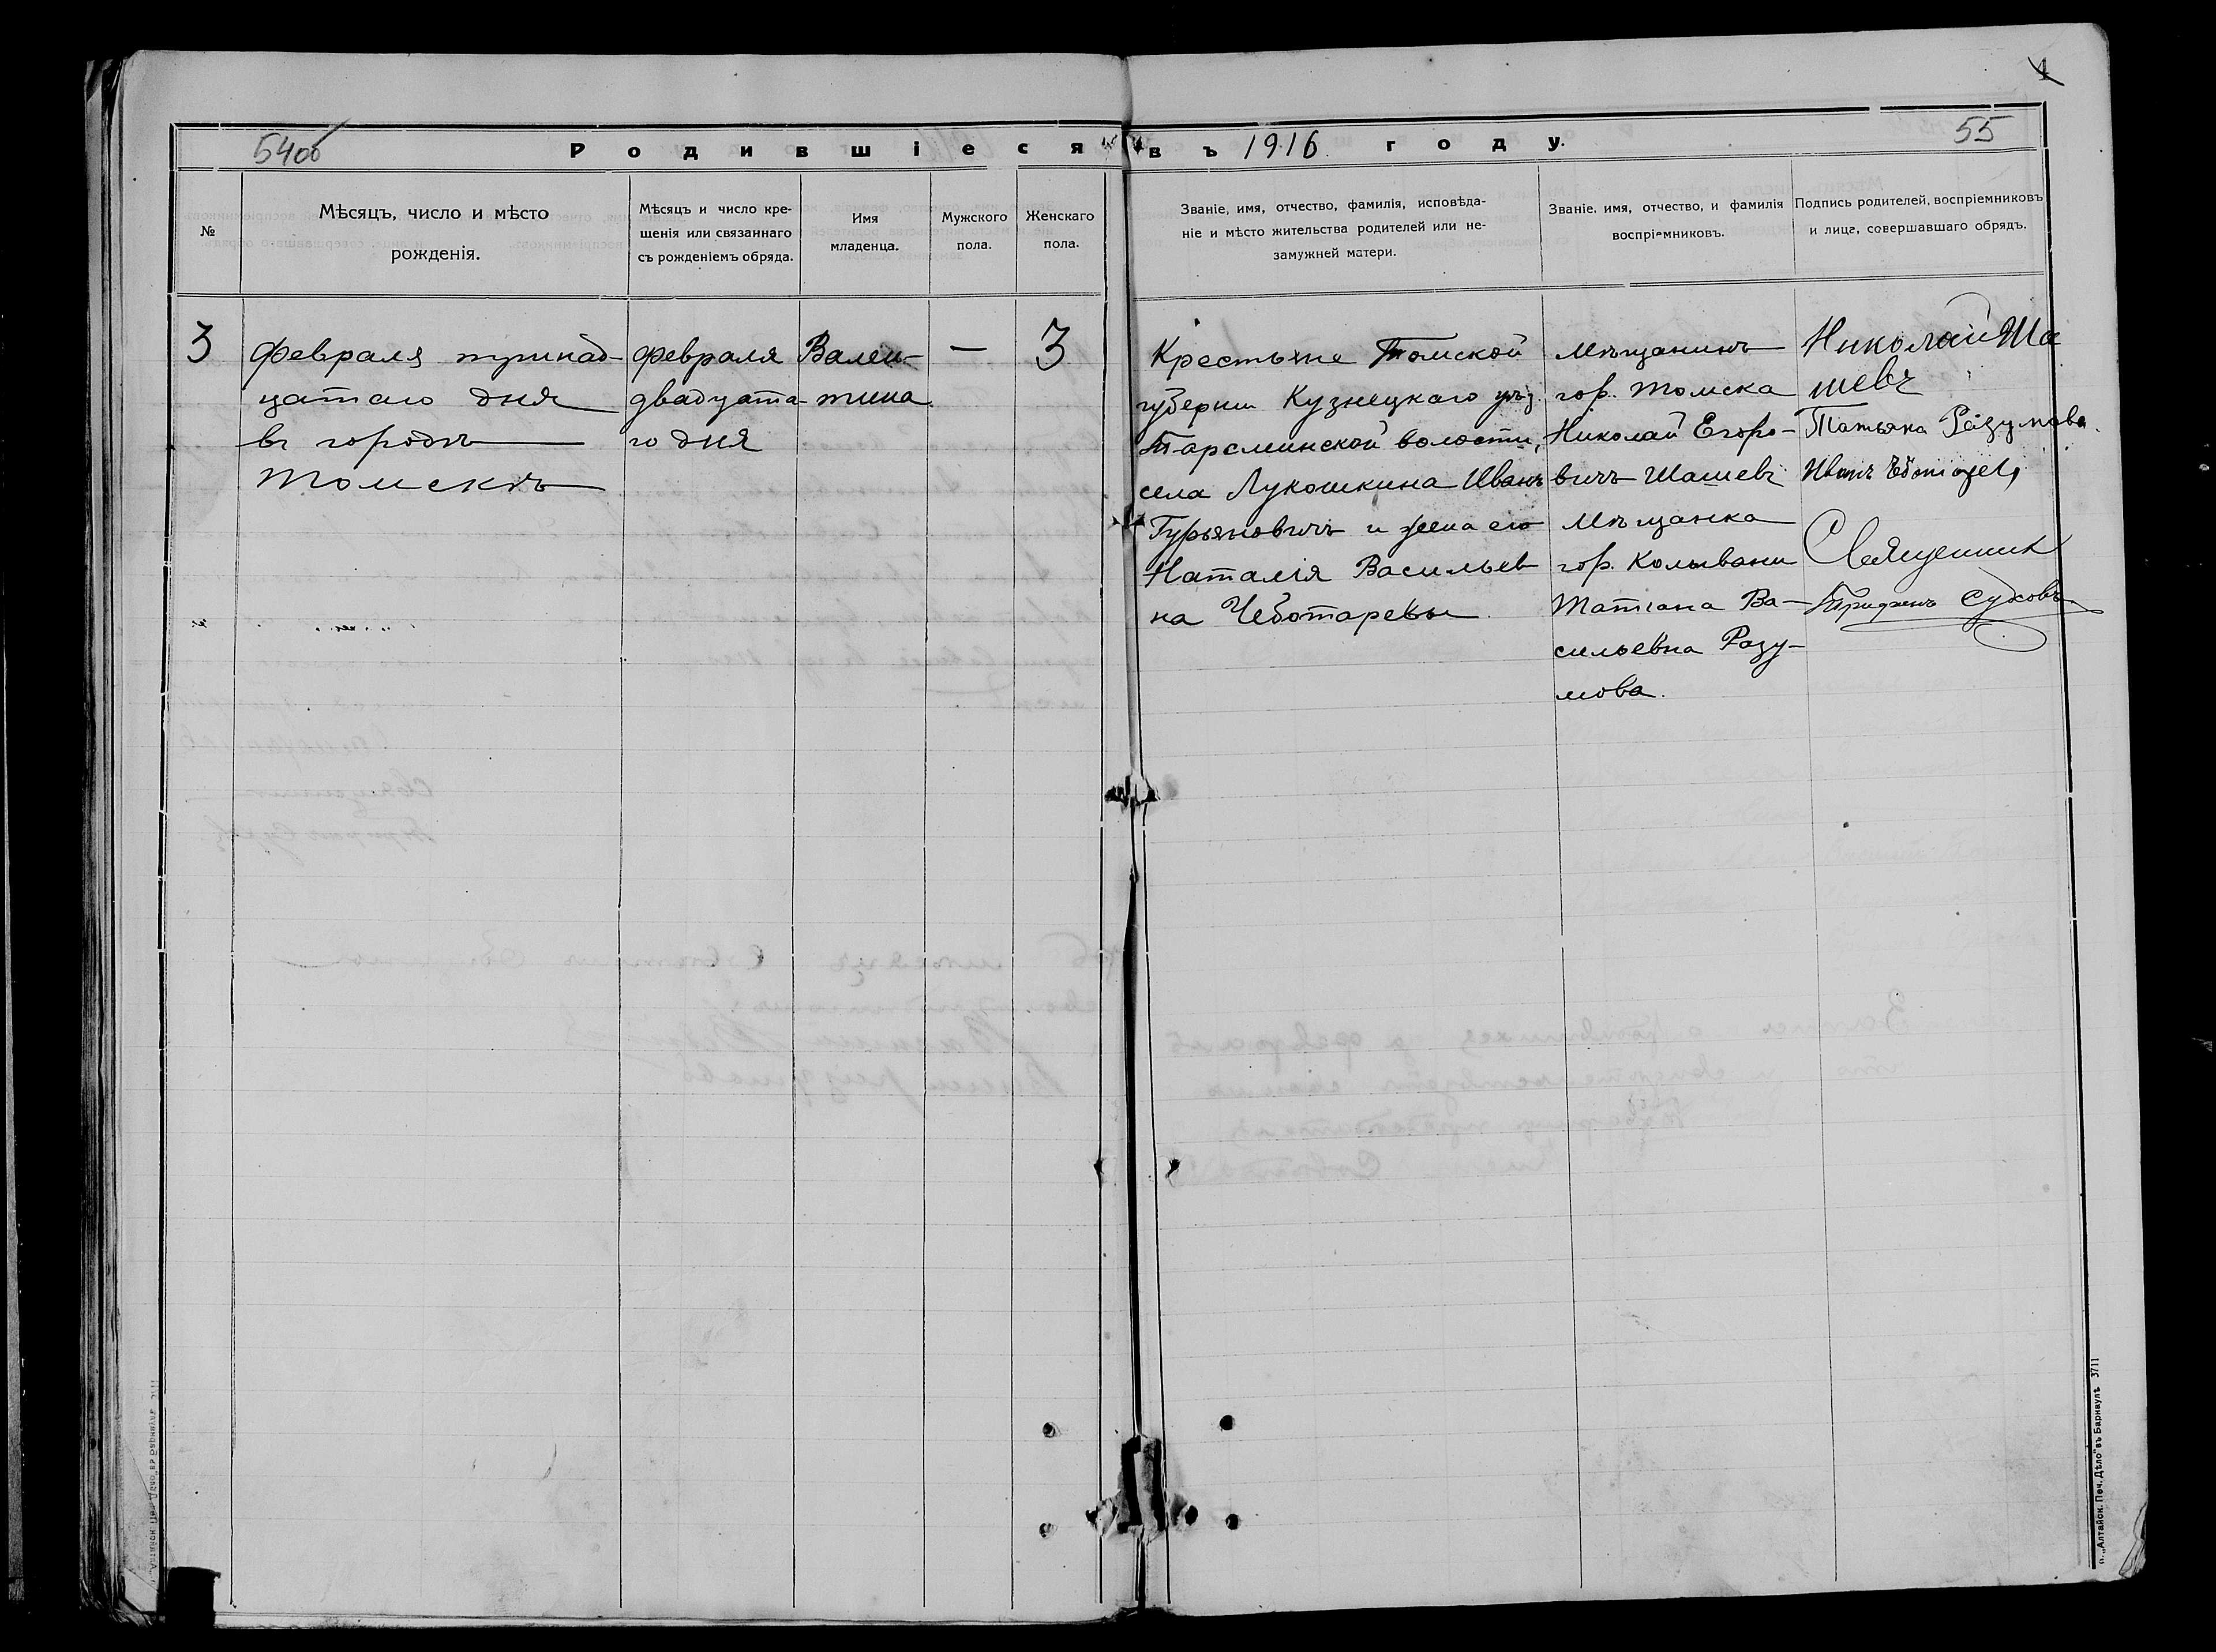 4
54об
Родившіеся въ 1916 году.
55
№
Мѣсяцъ, число и мѣсто
рожденія.
Мѣсяцъ и число кре-
щенія или связаннаго
съ рожденіемъ обряда.
Имя
младенца.
Мужского
пола.
Женскаго
пола.
Званіе, имя, отчество, фамилія, исповѣда-
ніе и мѣсто жительства родителей или не-
замужней матери.
Званіе, имя, отчество, и фамилія
воспріемниковъ.
Подпись родителей, воспріемниковъ
и лица, совершавшаго обрядъ.
3
Февраля тринад-
цатаго дня
въ городѣ
Томскѣ
Февраля
двадцата-
го дня
Вален-
тина
—
3
Крестьяне Томской
губерніи Кузнецкаго уѣз.
Тарсминской волости,
села Лукошкина Иванъ
Гурьяновичъ и жена его
Наталія Васильев
на Чеботаревы.
Мѣщанинъ
гор. Томска
Николай Егоро-
вичъ Шашевъ
Мѣщанка
гор. Колывани
Татіана Ва-
сильевна Разу-
мова.
Николай Ша
шевъ
Татьяна Разумова.
Иванъ
Священник
Трифонъ Суховъ
п. „Алтайск. Печ. Дѣло" въ Барнаулѣ 3711